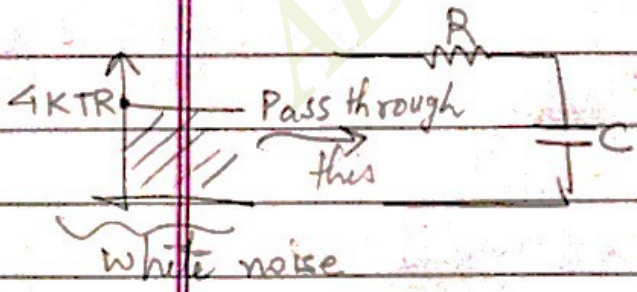 R
4KTR Pass through
this
C
White noise